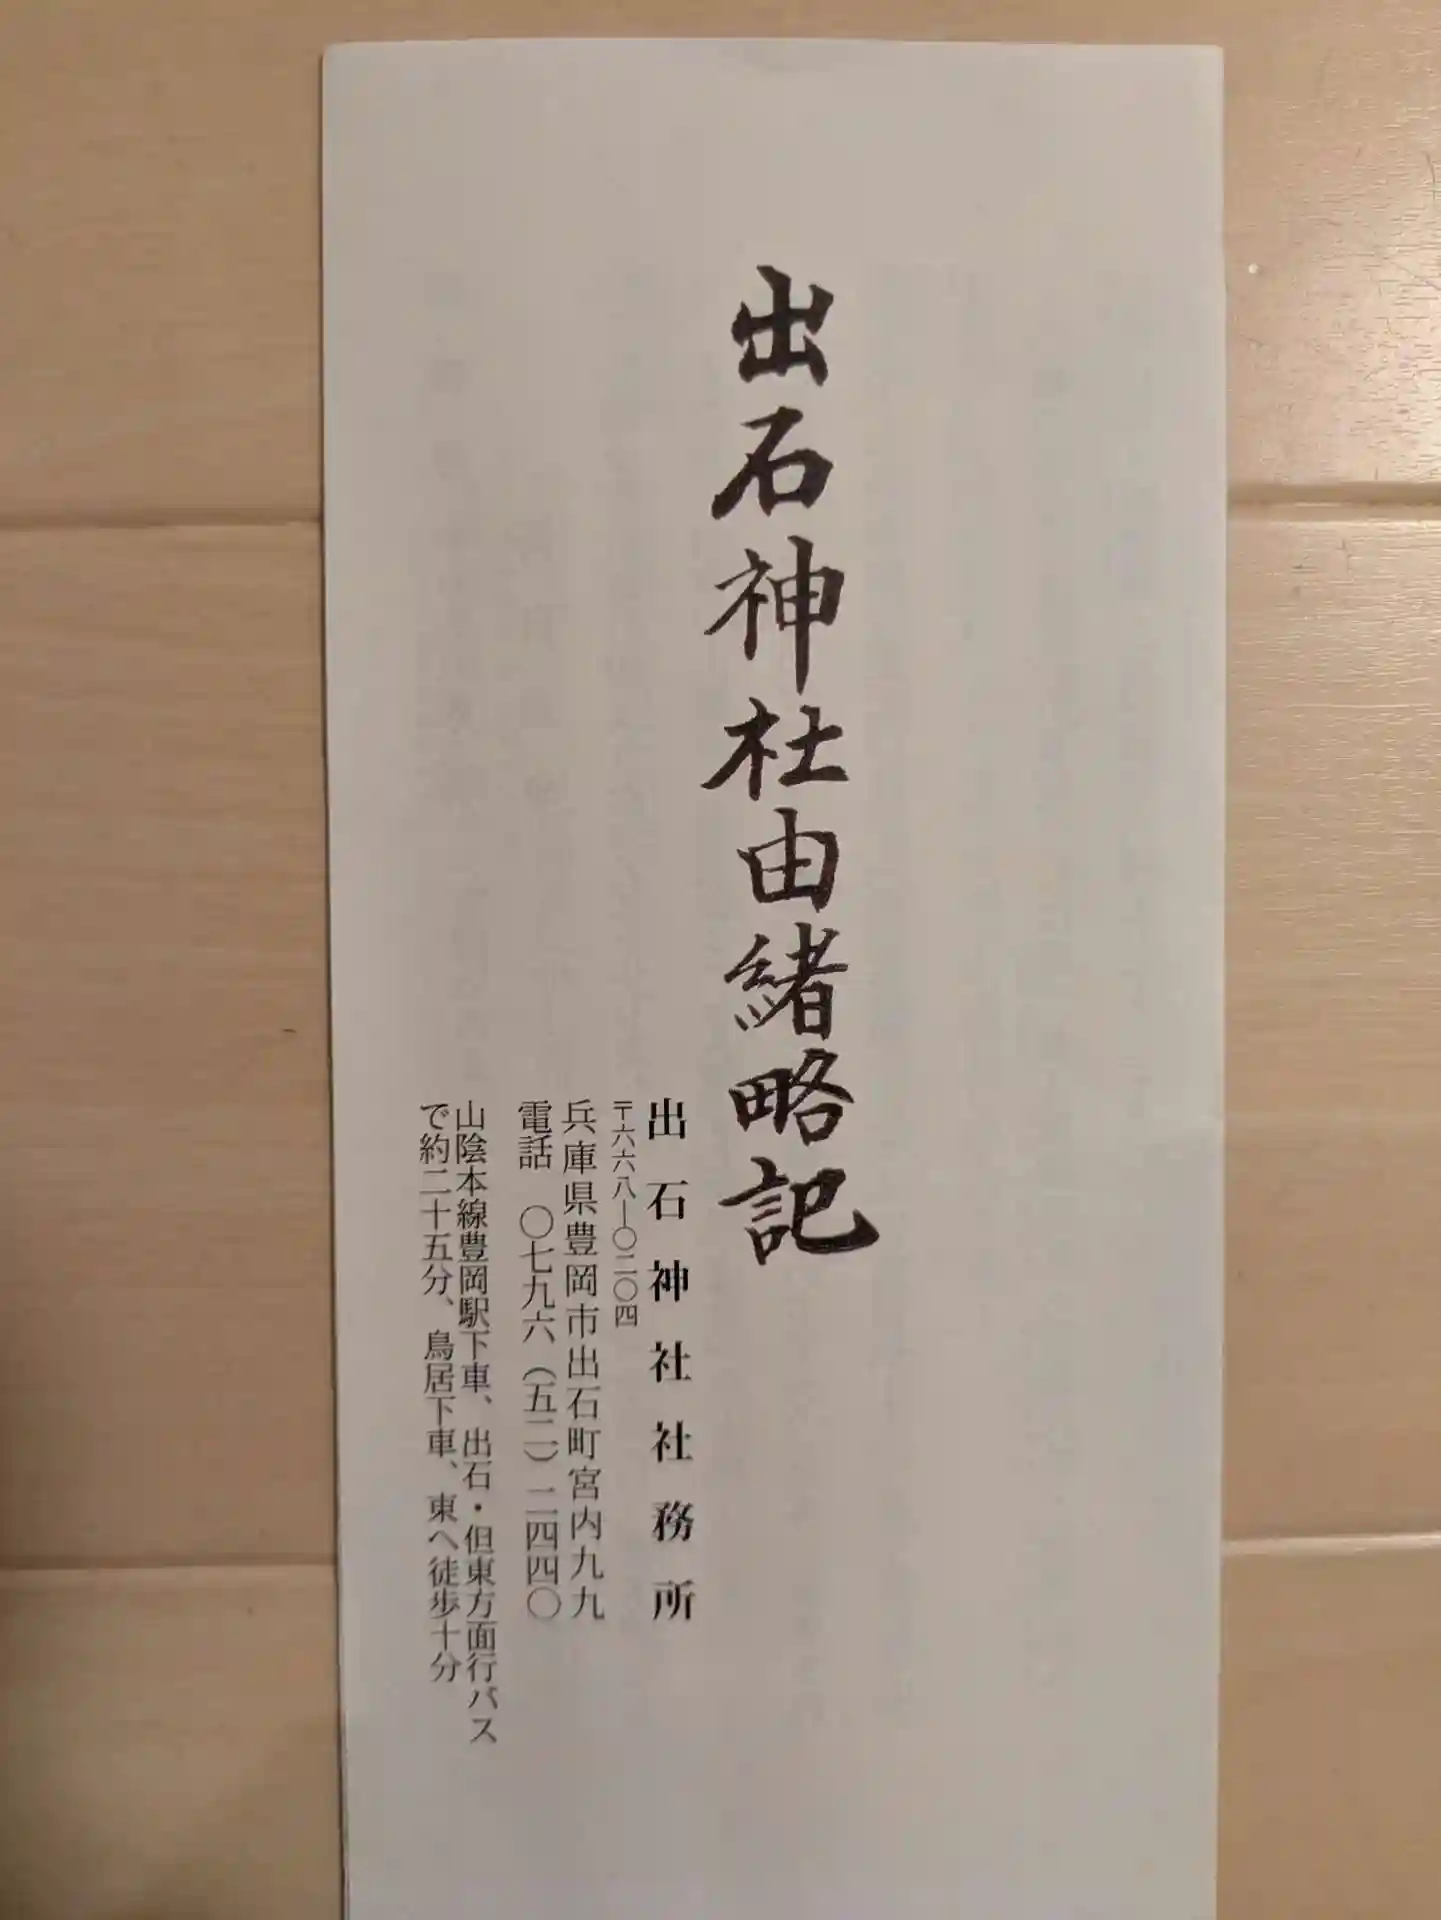 出石神社由緒略記
出石神社社務所
〒六六八―〇二〇四
兵庫県豊岡市出石町宮内九九
電話 〇七九六(五二)二四四〇
山陰本線豊岡駅下車、出石・但東方面行バス
で約二十五分、鳥居下車、東へ徒歩十分